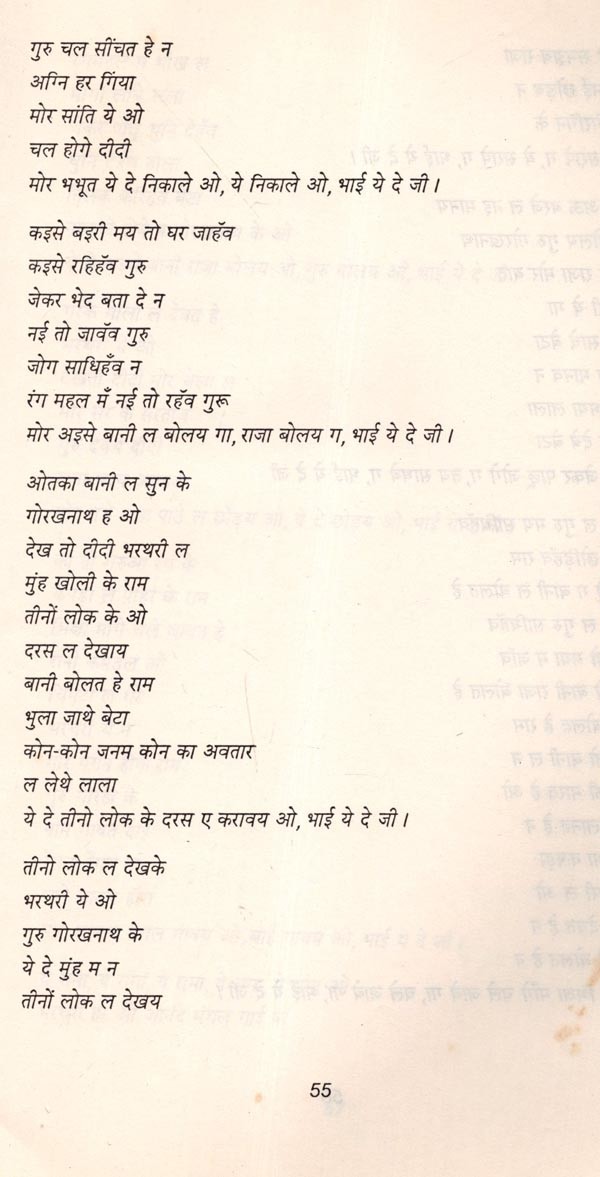 गुरु चल सींचत हे न
अग्नि हर गिंया
मोर सांति ये ओ
चल होगे दीदी
मोर भभूत ये दे निकाले ओ, ये निकाले ओ, भाई ये दे जी ।
कइसे बइरी मय तो घर जाहॅव
कइसे रहिहॅव गुरु
जेकर भेद बता दे न
नई तो जावॅव गुरु
जोग साधिहँव न
रंग महल मँ नई तो रहॅव गुरू
मोर अइसे बानी ल बोलय गा, राजा बोलय ग, भाई ये दे जी ।
ओतका बानी ल सुन के
गोरखनाथ ह ओ
देख तो दीदी भरथरी ल
मुंह खोली के राम
तीनों लोक के ओ
दरस ल देखाय
बानी बोलत हे राम
भुला जाथे बेटा
कोन-कोन जनम कोन का अवतार
ल लेथे लाला
ये दे तीनो लोक के दरस ए करावय ओ, भाई ये दे जी ।
तीनो लोक ल देखके
भरथरी ये ओ
गुरु गोरखनाथ के
ये दे मुंह म न
तीनों लोक ल देखय
55